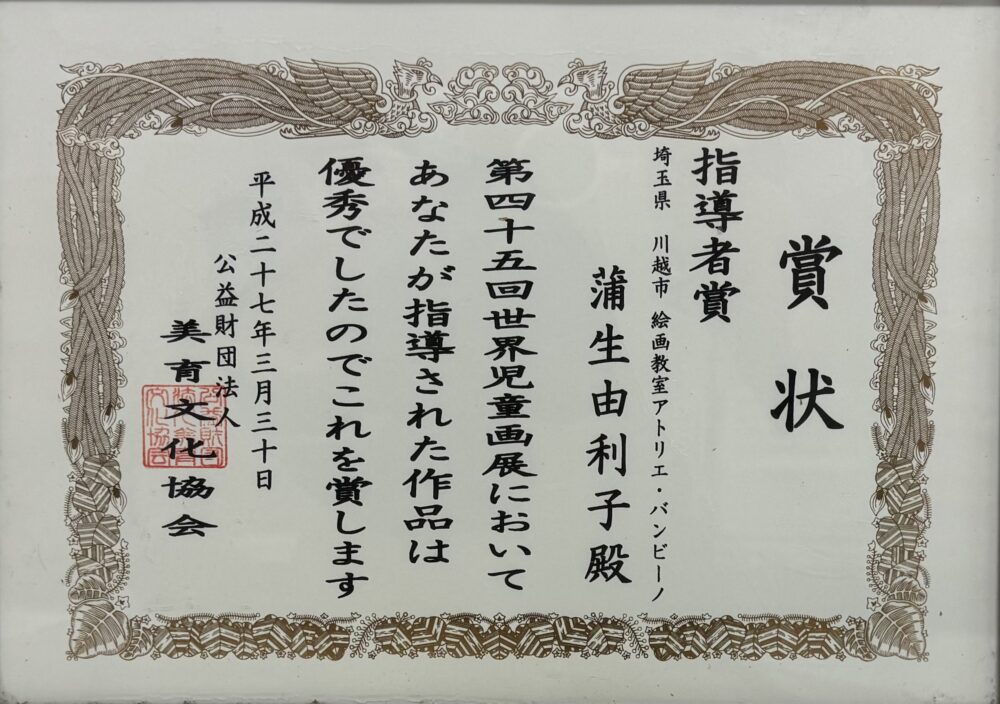 賞状
指導者賞
埼玉県 川越市 絵画教室アトリエ・バンビーノ
蒲生由利子殿
第四十五回世界児童画展において
あなたが指導された作品は
優秀でしたのでこれを賞します
平成二十七年三月三十日
公益財団法人
美育文化協会